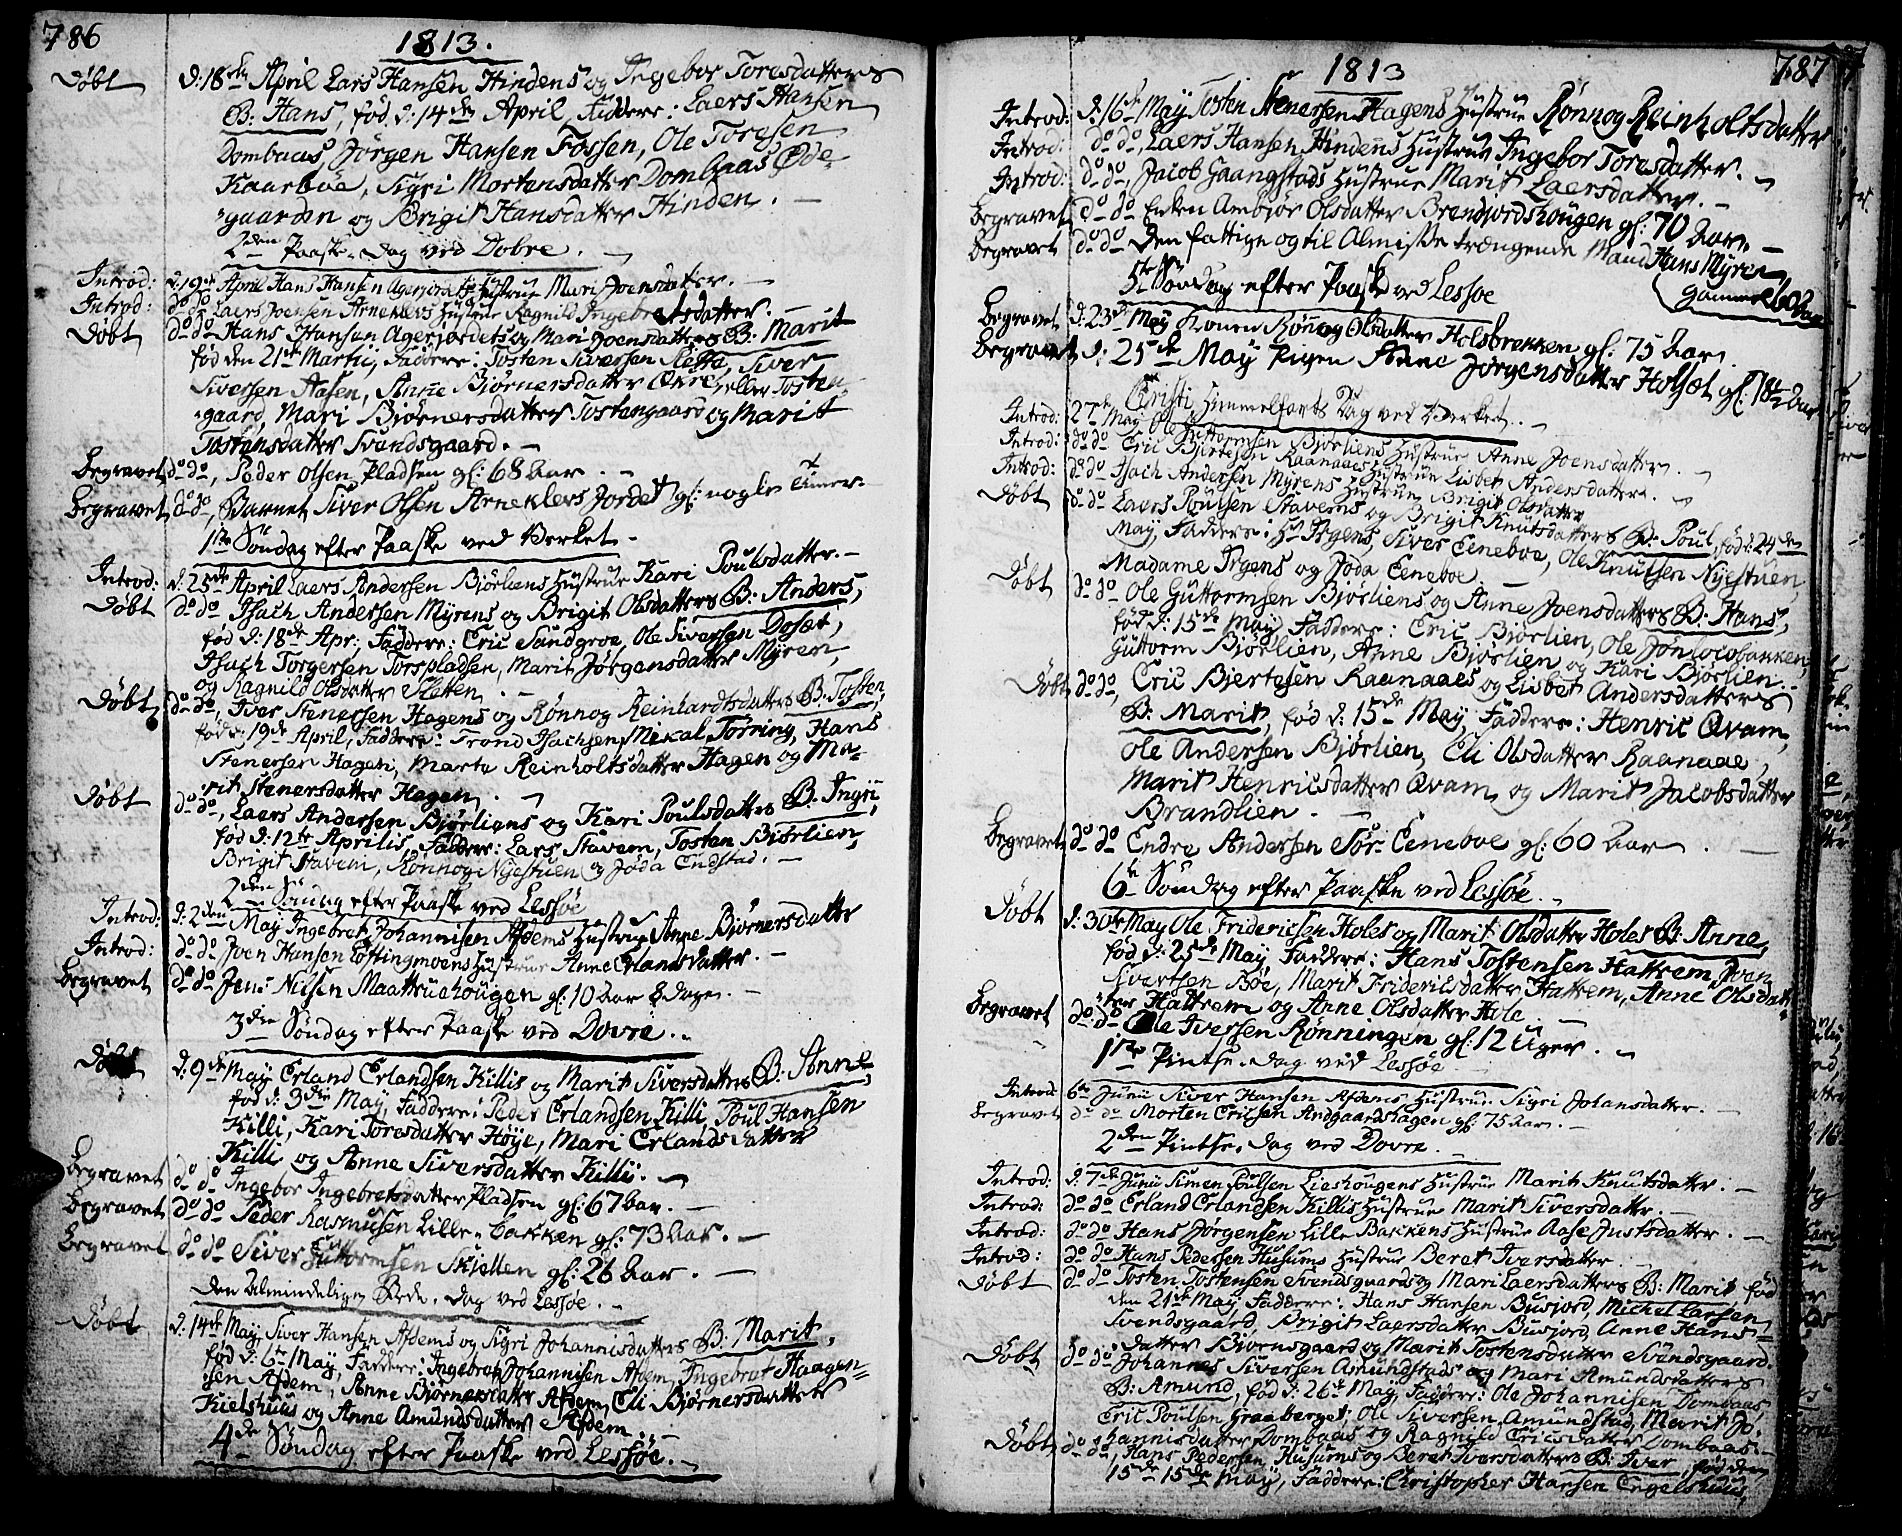 786
1813.
Döbt d: 18de April Lars Hansen Hindens og Ingebor Toresdatters
B: Hans, fød d: 14de April, Faddere: Laers Hansen
Dombaas, Jörgen Hansen Fossen, Ole Toresen
Kaarböe, Sigri Mortensdatter Dombaas Øde-
gaarden og Brigit Hansdatter Hinden.
2den Paaske-Dag ved Dobre.
Introd: d: 19de April Hans Hansen Agerjordets Hustrue Mari Joensdatter.
Introd: do do Laers Joensen Arneklevs Hustrue Ragnild Ingebretsdatter.
Döbt do do Hans Hansen Agerjordets og Mari Joensdatters B: Marit
fød den 21de Martii, Faddere: Tosten Siversen Slette, Siver
Siversen Aasen, Anne Biørnersdatter Øvre, eller Tosten-
gaard, Mari Biørnersdatter Tostengaard og Marit
Tostensdatter Svandsgaard.
Begravet do do, Peder Olsen Pladsen gl: 68 Aar.
Begravet do do, Barnet Siver Olsen Arneklevs Jordet gl: nogle Timer.
1ste Søndag efter Paaske ved Verket.
Introd: d: 25de April Laers Andersen Bjørliens Hustrue Kari Poulsdatter.
Döbt do do Isach Andersen Myrens og Brigit Olsdatters B: Anders,
fød d: 18de Apr; Faddere: Eric Sandgroe, Ole Siversen Dosæt,
Isach Torgersen Torspladsen, Marit Jørgensdatter Myren,
og Ragnild Olsdatter Sletten.
Döbt do do, Iver Stenersen Hagens og Rønnog Reinhardtsdatters B: Tosten,
fød d: 19de April, Faddere: Trond Isachsen, Mikal Torring, Hans
Stenersen Hagen, Marte Reinholtsdatter Hagen og Ma-
rit Stenersdatter Hagen.
Döbt do do, Laers Andersen Bjørliens og Kari Poulsdatters B: Ingri,
fød d: 12te Aprilis, Faddere: Lars Stavem, Tosten Biørlien,
Brigit Stavem, Rønnog Nijestuen og Jøda Endstad.
2den Søndag efter Paaske ved Lessøe
Introd: d: 2den May Ingebret Johannisen Afdems Hustrue Anne Biørnersdatter
Introd: do do Joen Hansen Loftingmoens Hustrue Anne Erlandsdatter.
Begravet do do Jens Nilsen Maattruehougen gl: 10 Aar 8 Dage.
3die Søndag efter Paaske ved Dovre.
Döbt d: 9de May Erland Erlandsen Killis og Marit Siversdatters B: Anne,
fød d: 3die May, Faddere: Peder Erlandsen Killi, Poul Hansen
Killi, Kari Toresdatter Høye, Mari Erlandsdatter
Killi og Anne Siversdatter Killi.
Begravet do do Ingebor Ingebretsdatter Pladsen gl: 67 Aar.
Begravet do do Peder Rasmusen Lille-bakken gl: 73 Aar.
Begravet do do Siver Guttormsen Skiellen gl: 26 Aar.
Den Almindelige Bede-Dag ved Lessøe.
Döbt d: 14de May Siver Hansen Afdems og Sigri Johannisdatters B: Marit,
fød d: 6te May, Faddere: Ingebret Johannisen Afdem, Ingebret Haagen-
sen Afdem, Anne Biørnersdatter Afdem, Eli Biørnersdatter
Kielshuus og Anne Amundsdatter Afdem.
4de Søndag efter Paaske ved Lessøe.
787
1813
Introd: d: 16de May Tosten Stenersen Hagens Hustrue Rønnog Reinholtsdatter
Introd: do do, Laers Hansen Hindens Hustrue Ingebor Toresdatter.
Introd: do do, Jacob Gaangstads Hustrue Marit Laersdatter.
Begravet do do Enken Ambiør Olsdatter Brendjordshougen gl: 70 Aar.
Begravet do do Den fattige og til Almisse trængende Mand Hans Myren
gammel 60 Aar
5te Søndag efter Paaske ved Lessøe
Begravet d: 23de May Konen Rønnog Olsdatter Holsbrekken gl: 75 Aar.
Begravet d: 25de May Pigen Anne Jørgensdatter Holsæt gl: 18½ Aar
Christi Himmelfarts Dag ved Verket.
Introd: 27de May Ole Guttormsen Bjørliens Hustrue Anne Joensdatter.
Introd: do do Eric Bjertesen Raanaaes Hustrue Lisbet Andersdatter.
Introd: do do Isach Andersen Myrens Hustrue Brigit Olsdatter
Döbt do do Laers Poulsen Stavems og Brigit Knutsdatters B: Poul, fød d: 24de
May, Faddere: Hr Irgens, Siver Eeneboe, Ole Knutsen Nijestuen,
Madame Irgens og Jøda Eeneboe.
Döbt do do Ole Guttormsen Bjorliens og Anne Joensdatters B: Hans,
fød d: 15de May, Faddere: Eric Bjørlien, Ole Jønlocobakken,
Guttorm Bjørlien, Anne Bjørlien og Kari Bjørlien.
Döbt do do, Eric Bjertesen Raanaaes og Lisbet Andersdatters
B: Marit, fød d: 15de May, Faddere: Henric Qvam,
Ole Andersen Bjørlien, Eli Olsdatter Raanaae,
Marit Henricsdatter Qvam, og Marit Jacobsdatter
Brandlien.
Begravet do do Endre Andersen Sør-Eeneboe gl: 60 Aar.
6te Søndag efter Paaske ved Lessøe.
Döbt d: 30te May Ole Fridericsen Holes og Marit Olsdatter Holes B: Anne,
fød d: 25de May, Faddere: Hans Tostensen Hattrem, Joen
Syvertsen Bøe, Marit Fridericsdatter Hattrem, Anne Olsdat-
ter Hattrem og Anne Olsdatter Hole.
Begravet do do Ole Iversen Rønningen gl: 12 Uger.
1ste Pintse-Dag ved Lessøe
Introd 6te Junii Siver Hansen Afdems Hustrue Sigri Johansdatter.
Begravet do do Morten Ericsen Andgaardshagen gl: 75 Aar.
2den Pintse-Dag ved Dovre.
Introd: d: 7de Junii Simen Poulsen Lieshougens Hustrue Marit Knutsdatter.
Introd: do do Erland Erlandsen Killis Hustrue Marit Siversdatter.
Introd: do do Hans Jørgensen Lille Bakkens Hustrue Aase Justsdatter.
Introd: do do Hans Pedersen Husums Hustrue Beret Iversdatter.
Döbt do do Tosten Tostensen Svendsgaards og Mari Laersdatters B: Marit fød
den 21de May, Faddere: Hans Hansen Busjord, Michel Larsen
Svendsgaard, Brigit Laersdatter Busjord, Anne Hans-
datter Biørnsgaard og Marit Tostensdatter Svandsgaard.
Döbt do do Johannes Siversen Amundstads og Mari Amundsdatters
B: Amund, fød d: 26de May, Faddere: Ole Johannisen Dombaas
Eric Poulsen Graaberget, Ole Siversen Amundstad, Marit Jo-
hannisdatter Dombaas og Ragnild Ericsdatter Dombaas.
Döbt do do, Hans Pedersen Husums og Beret Iversdatters B: Iver, fød den
15de May, Faddere: Christopher Hansen Engelshuus,